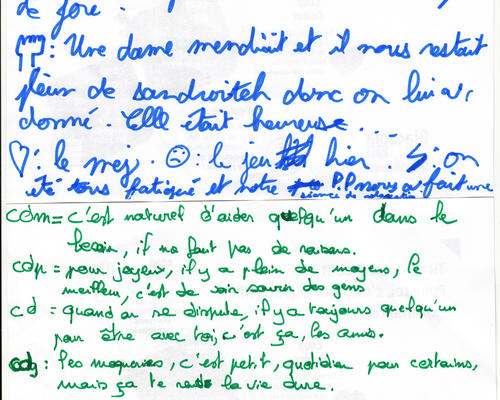 de foré.
: Une dame mendiait et il nous restait
plein de sandwitch donc on lui a
donné. Elle était heureuse...
♡: le mej. ☹: le jeu hier. : on
été tous fatigué et notre P.P nous a fait une
séance de relaxation
cdm = c'est naturel d'aider quelqu'un dans le
besoin, il ne faut pas de raisons.
cdp = pour joyeux, il y a plein de moyens, le
meilleur, c'est de voir sourir des gens
cd = quand on se dispute, il y a toujours quelqu'un
pour être avec toi, c'est ça, les amis.
cdg : les moqueries, c'est petit, quotidien pour certains,
mais ça te rend la vie dure.